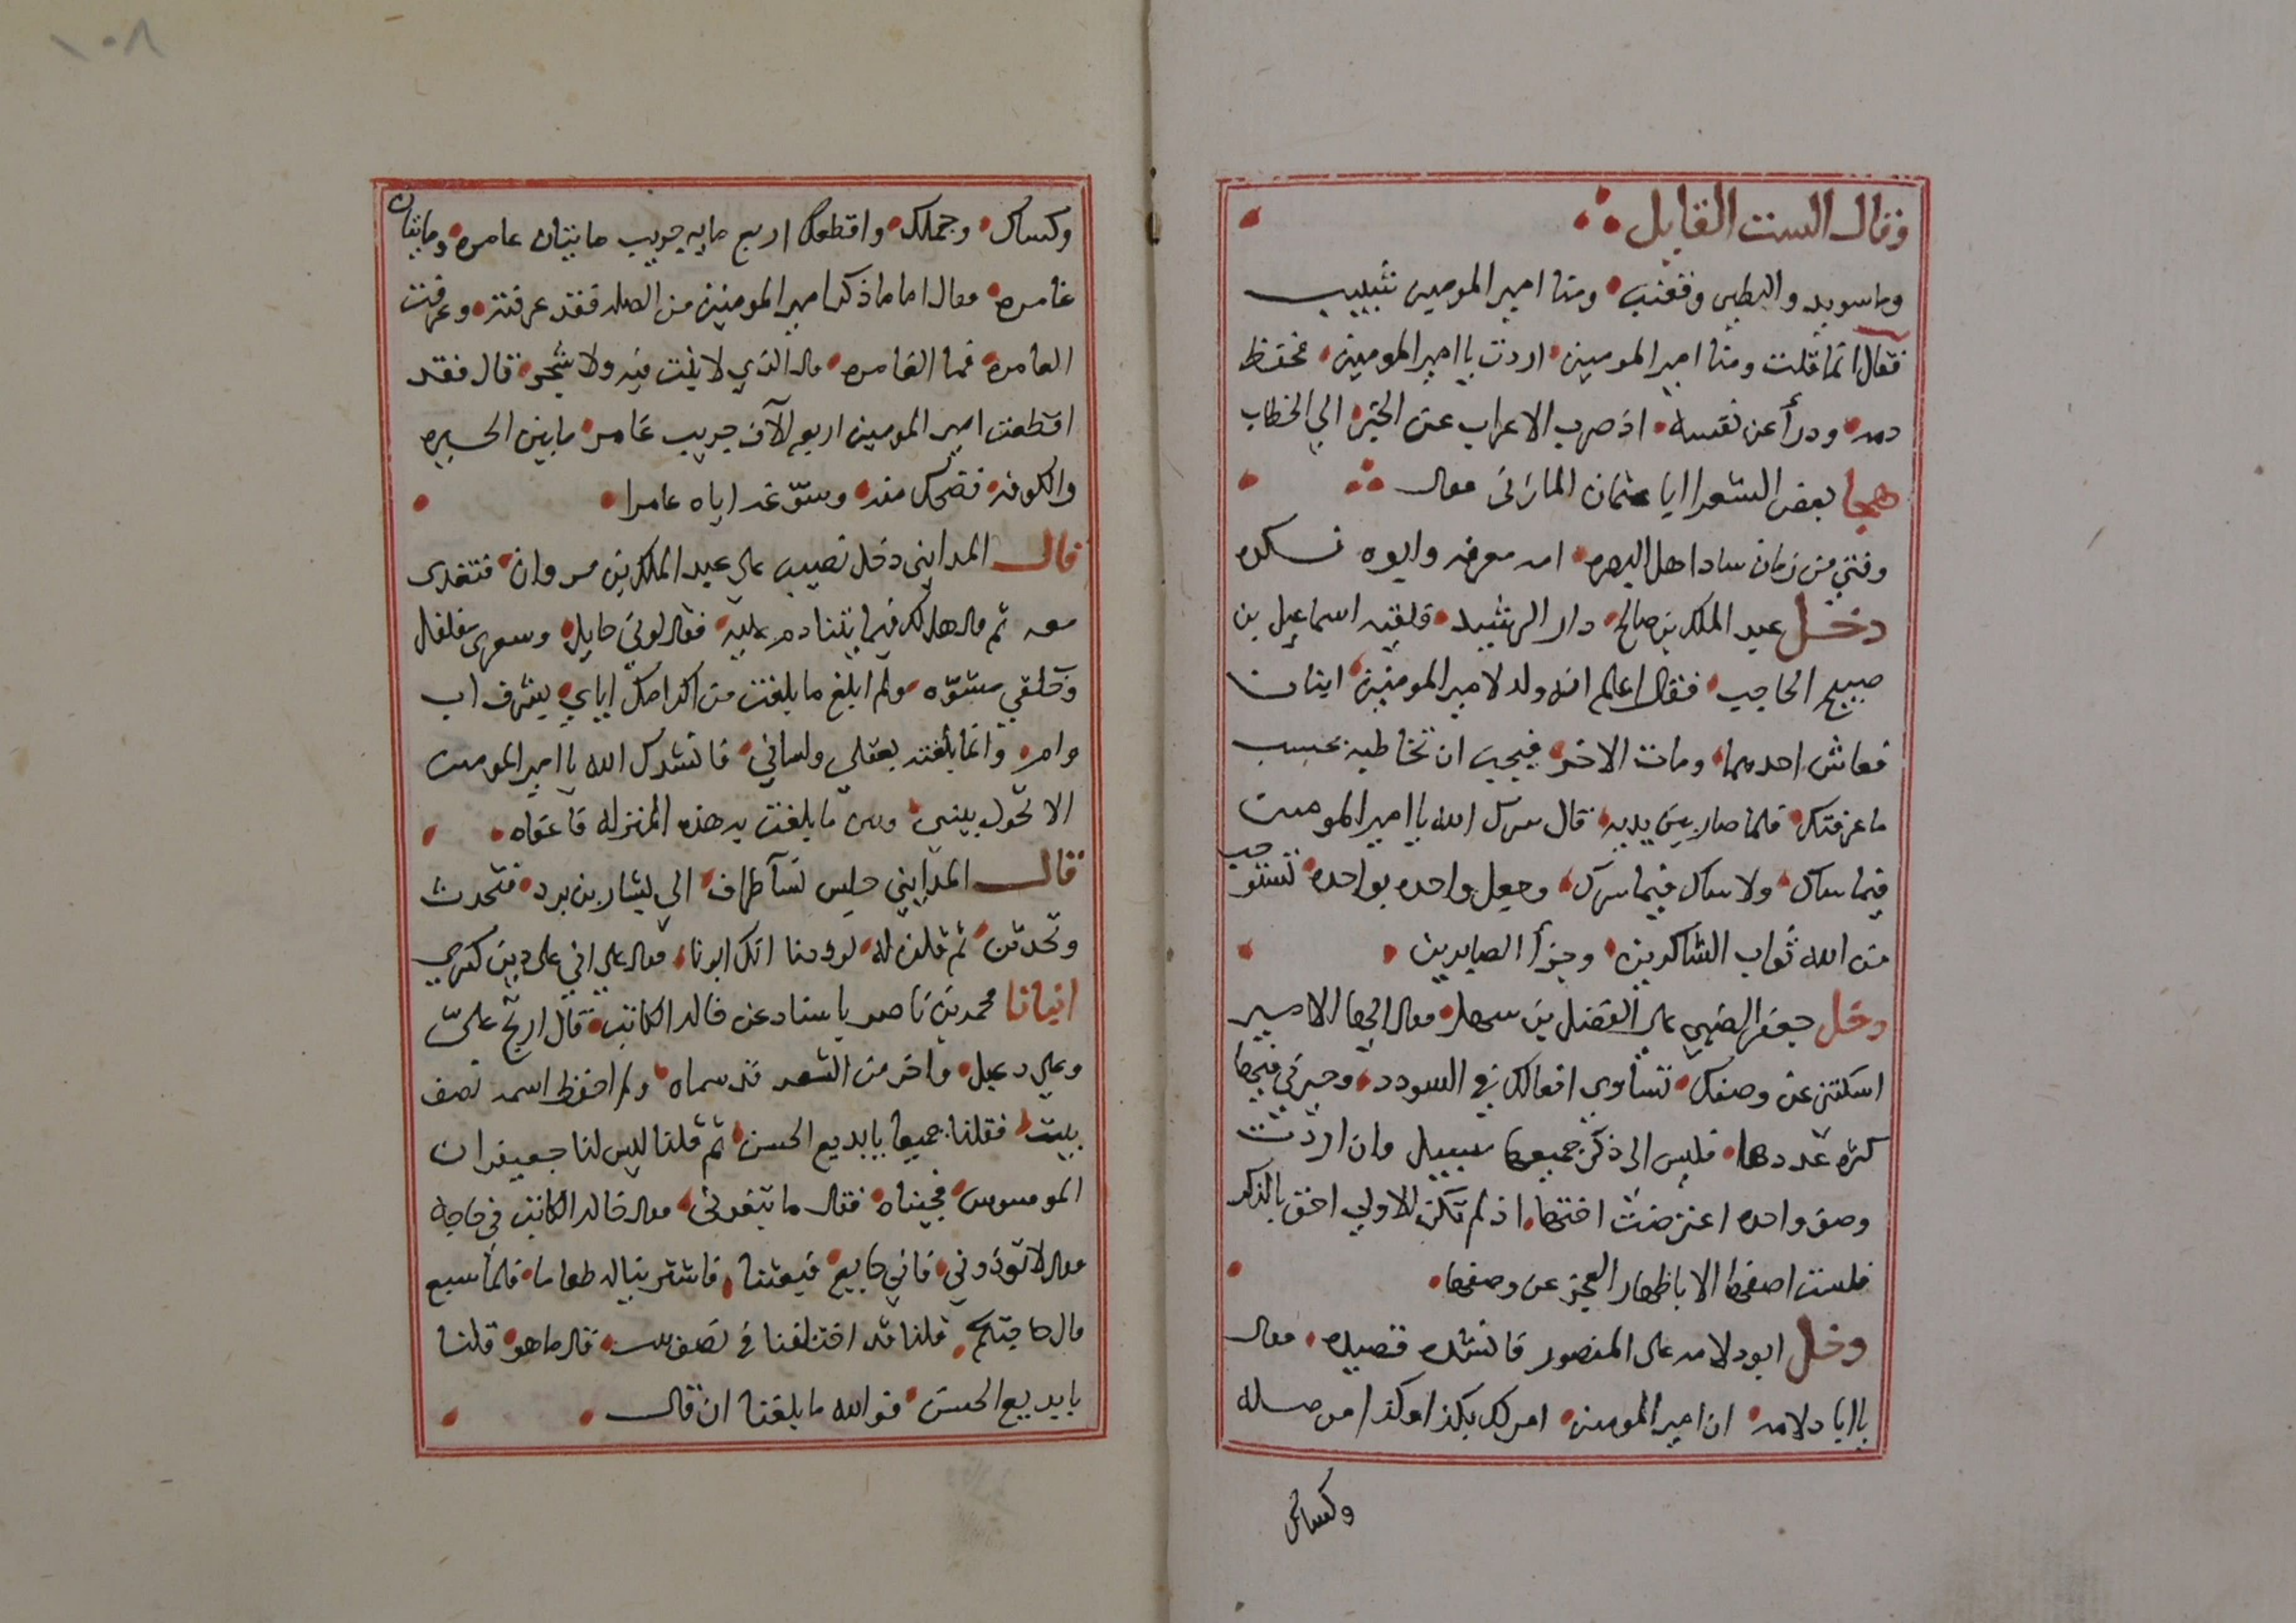 فقال الست القايل
وما سويد والبطين وقعنب ومنا امير المومنين شبيب
فقال انما قلت ومنا امير المومنين اردت يا امير المومنين فحفظ
دمه ودرأ عن نفسه اذ صرب الاعراب عن الخبر الي الخطاب
هجا بعض الشعرا ابا عثمان المازنى فقال
وفتى من زمان ساد اهل البصره امه معرفه وابوه نكره
دخل عبد الملك بن صالح دار الرشيد فلقيه اسماعيل بن
صبيح الحاجب فقال اعلم انه ولد لامير المومنين ابنان
فعاش احدهما ومات الاخر فيجب ان تخاطبه بحسب
ما عرفتك فلما صار بين يديه قال سرك الله يا امير المومنين
فيما ساك ولا ساك فيما سرك وجعل واحده بواحده تستوجب
من الله ثواب الشاكرين وجزأ الصابرين
دخل جعفر الضبي على الفضل بن سهل فقال ايها الامير
اسكتني عن وصفك تساوي افعالك في السودد وحيرني فيها
كثره عددها فليس الى ذكر جميعها سبيل وان اردت
وصف واحده اعترضت اختها اذ لم تكن الاولي احق بالذكر
فلست اصفها الا باظهار العجز عن وصفها
دخل ابو دلامه على المنصور فانشده قصيده فقال
يا ابا دلامه ان امير المومنين امر لك بكذا وكذا من صله
وكساك
١٠٨
وكساك وجملك واقطعك اربع مايه جريب مايتان عامره ومايتان
غامره فقال اما ما ذكر امير المومنين من الصله فقد عرفته وعرفت
العامره فما الغامره قال الذي لا ينبت فيه ولا شجر قال فقد
اقطعت امير المومنين اربع آلاف جريب غامر ما بين الحيره
والكوفه فضحك منه وسوغه اياه عامرا
قال المدايني دخل نصيب على عبد الملك بن مروان فتغدى
معه ثم قال هل لك فيما يتنادم عليه فقال لوني حايل وشعري مفلفل
وخلقي مشوه ولم ابلغ ما بلغت من اكرامك اياي بشرف اب
وام وانما بلغته بعقلي ولساني فانشدك الله يا امير المومنين
الا تحول بيني وبين ما بلغت به هذه المنزله فاعفاه
قال المدايني جلس نسآ ظراف الي بشار بن برد فتحدث
وتحدثن ثم قلن له لوددنا انك ابونا فقال على اني على دين كسري
انبانا محمد بن ناصر باسناد عن خالد الكاتب قال ارتج علىّ
وعلي دعبل واخر من الشعر قد سماه ولم احفظ اسمه نصف
بيت فقلنا جميعا يا بديع الحسن ثم قلنا ليس لنا جعيفران
الموسوس فجيناه فقال ما تبغوني فقال خالد الكاتب في حاجه
فقال لا توذوني فاني جايع فبعثنا فاشترينا له طعاما فلما شبع
قال حاجتكم قلنا قد اختلفنا في نصف بيت قال ما هو قلنا
يا بديع الحسن فوالله ما بلغنا ان قال